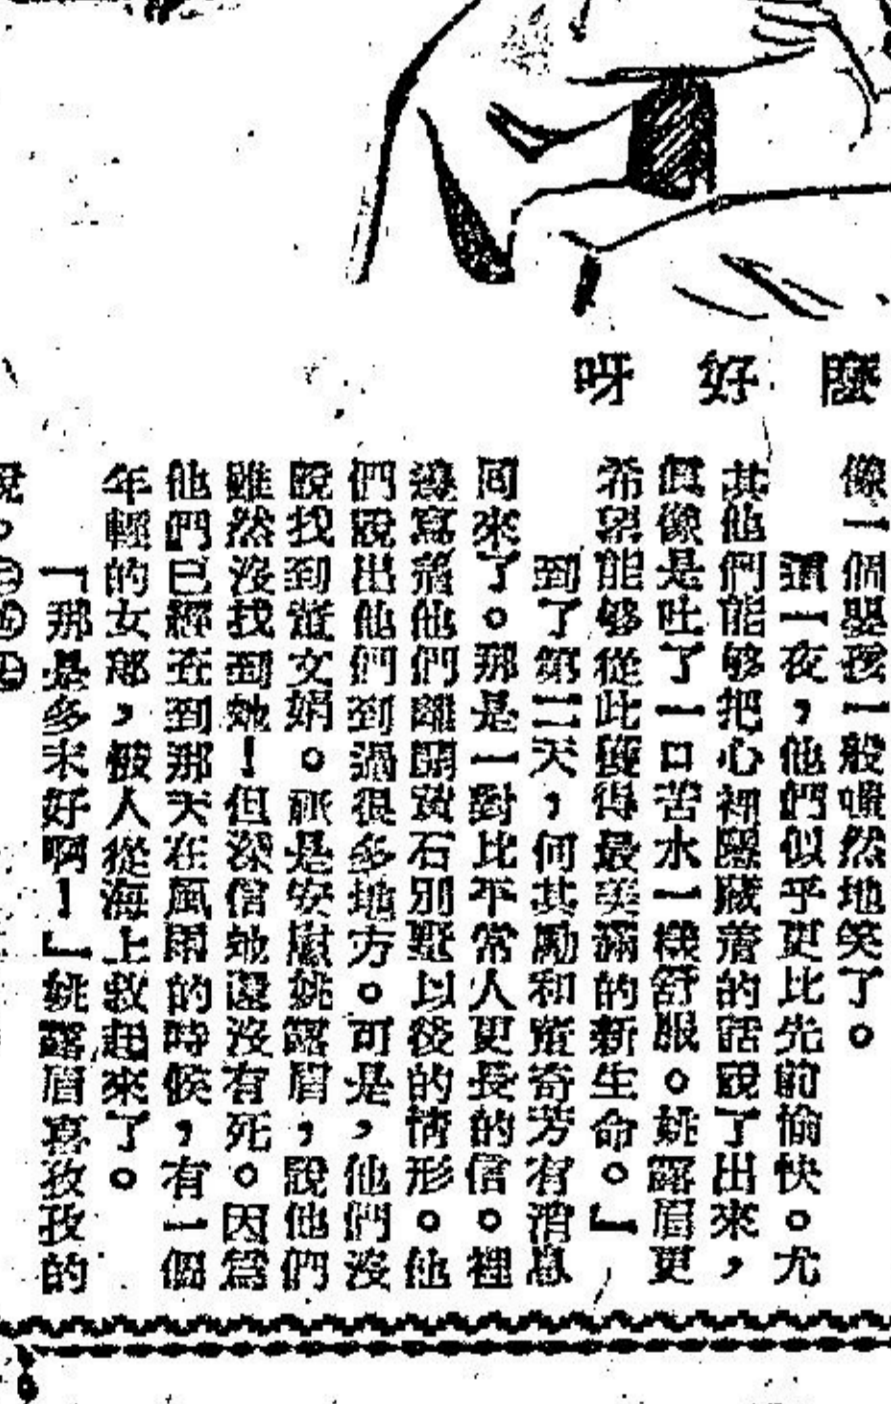 麼好呀
像一個嬰孩一般嗤然地笑了。
這一夜,他們似乎更比先前愉快。尤
其他們能够把心裡隱藏着的話說了出來,
眞像是吐了一口苦水一樣舒服。姚露眉更
希望能够從此獲得最美滿的新生命。」
到了第二天,何其勵和董奇芳有消息
回來了。那是一對比平常人更長的信。裡
邊寫着他們離開黃石別墅以後的情形。他
們說出他們到過很多地方。可是,他們沒
說找到董文娟。祇是安慰姚露眉,說他們
雖然沒找到她!但深信她還沒有死。因爲
他們已經查到那天在風雨的時候,有一個
年輕的女郎,被人從海上救起來了。
「那是多末好啊!」姚露眉喜孜孜的
說。